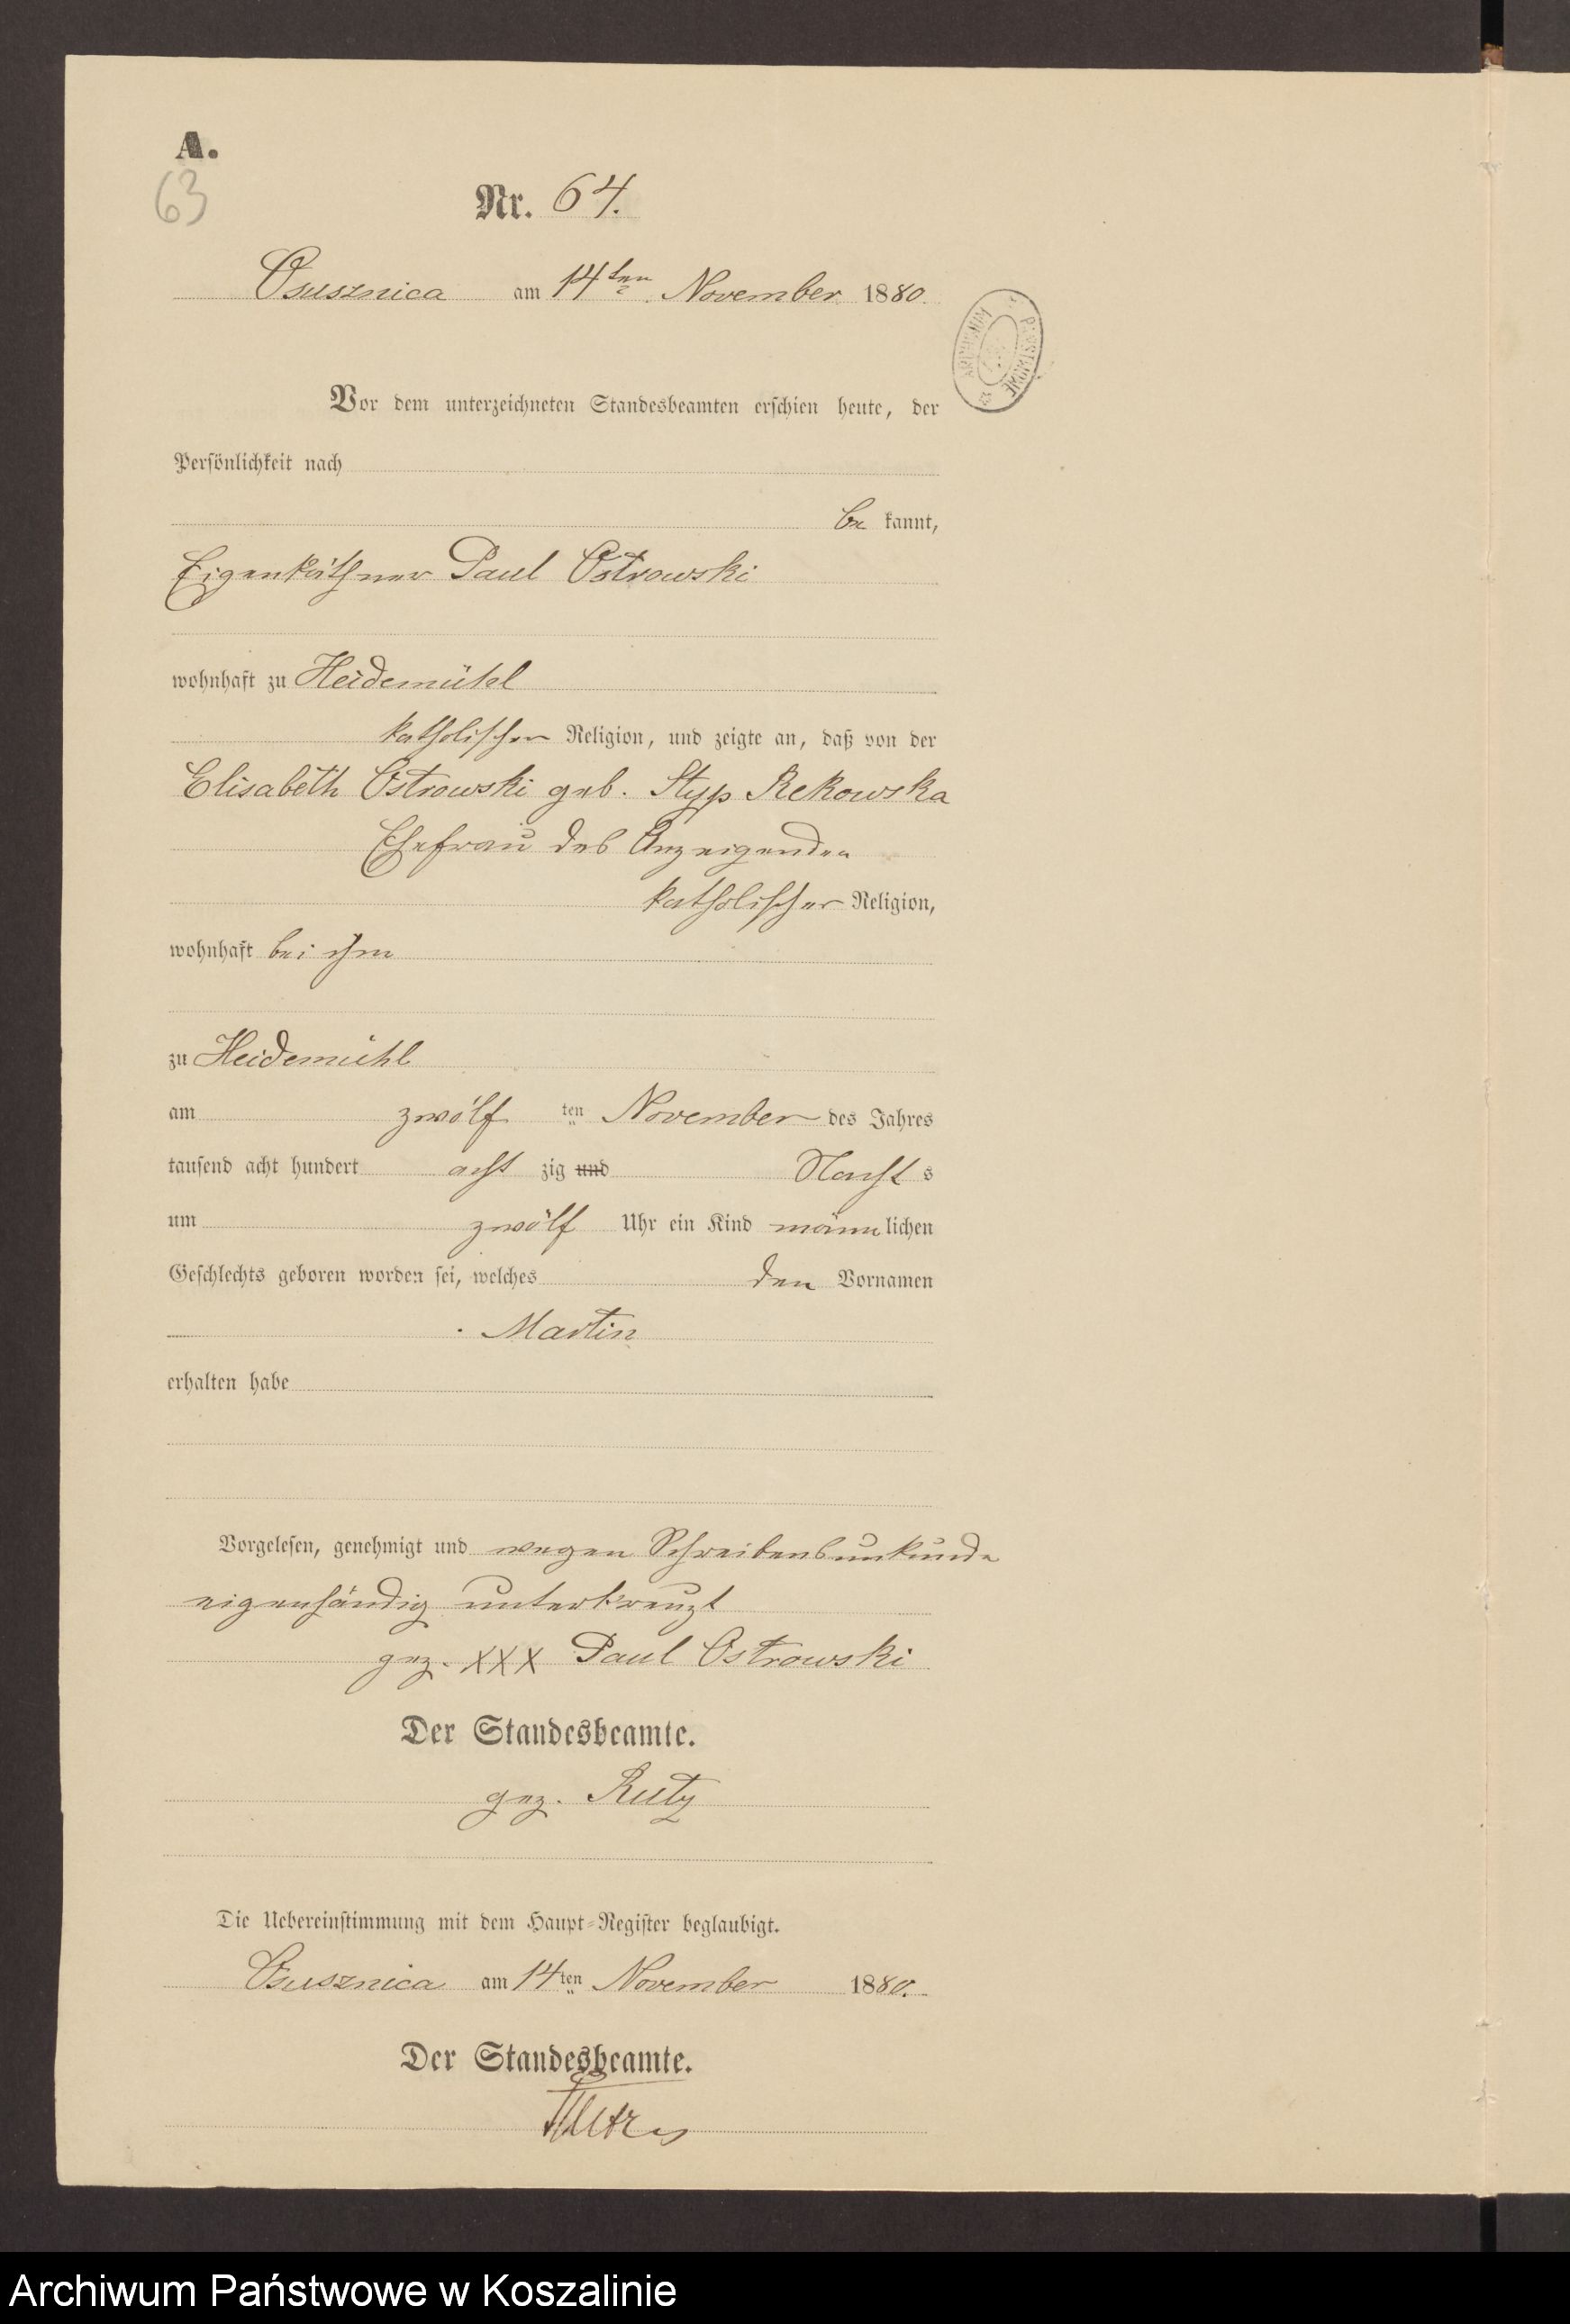 A.
63
Nr. 64.
Osusznica am 14ten November 1880.
ARCHIWUM PAŃSTWOWE
Vor dem unterzeichneten Standesbeamten erschien heute, der
Persönlichkeit nach
be kannt,
Eigenkäthner Paul Ostrowski
wohnhaft zu Heidemühl
katholischer Religion, und zeigte an, daß von der
Elisabeth Ostrowski geb. Styp Rekowska
Ehefrau des Anzeigenden
katholischer Religion,
wohnhaft bei ihm
zu Heidemühl
am zwölf ten November des Jahres
tausend acht hundert acht zig und Nacht s
um zwölf Uhr ein Kind männ lichen
Geschlechts geboren worden sei, welches den Vornamen
Martin
erhalten habe
Vorgelesen, genehmigt und wegen Schreibensunkunde
eigenhändig unterkreuzt
gez. XXX Paul Ostrowski
Der Standesbeamte.
gez. Rutz
Die Uebereinstimmung mit dem Haupt-Register beglaubigt.
Osusznica am 14ten November 1880.
Der Standesbeamte.
Rutz
Archiwum Państwowe w Koszalinie